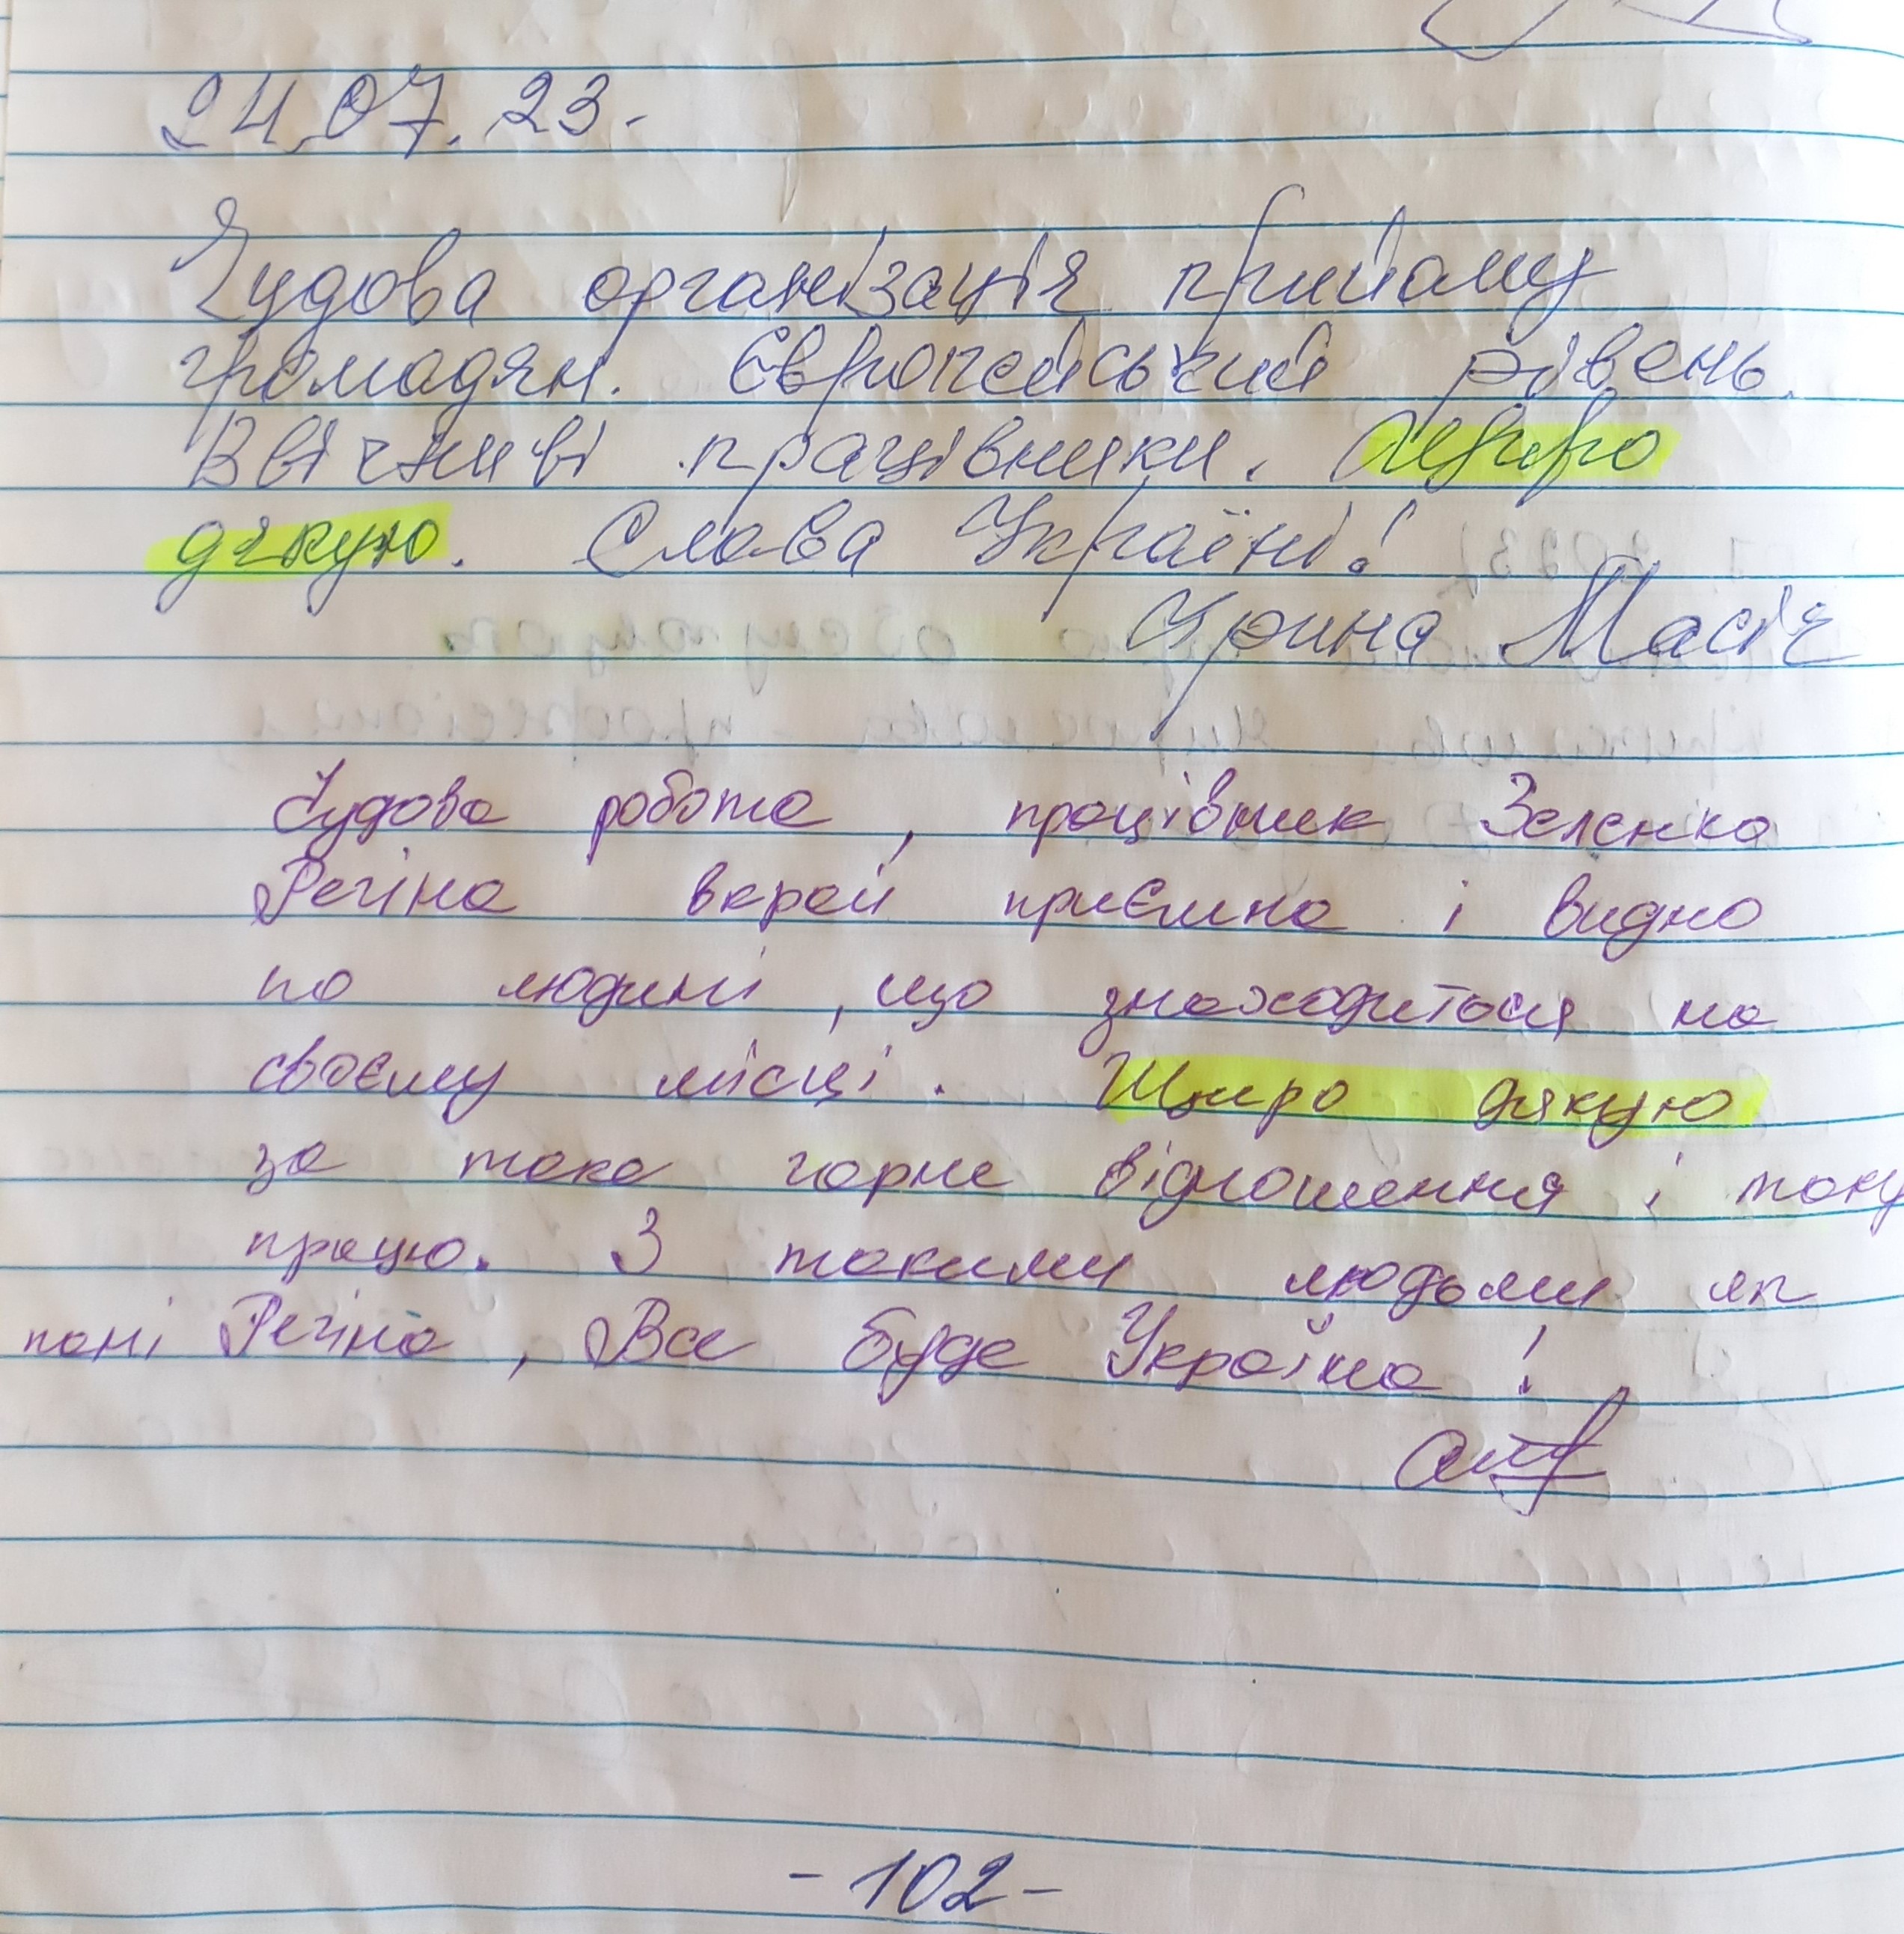 24.07.23.
Чудова організація прийому
громадян. Європейський рівень.
Ввічливі працівники. Щиро
дякую. Слава Україні!
Ирина Масіч
Чудова робота, працівник Зеленка
Регіна вкрай приємна і видно
по людині, що знаходиться на
своєму місці. Щиро дякую
за таке гарне відношення і таку
працю. З такими людьми як
пані Регіна, Все буде Україна!
-102-